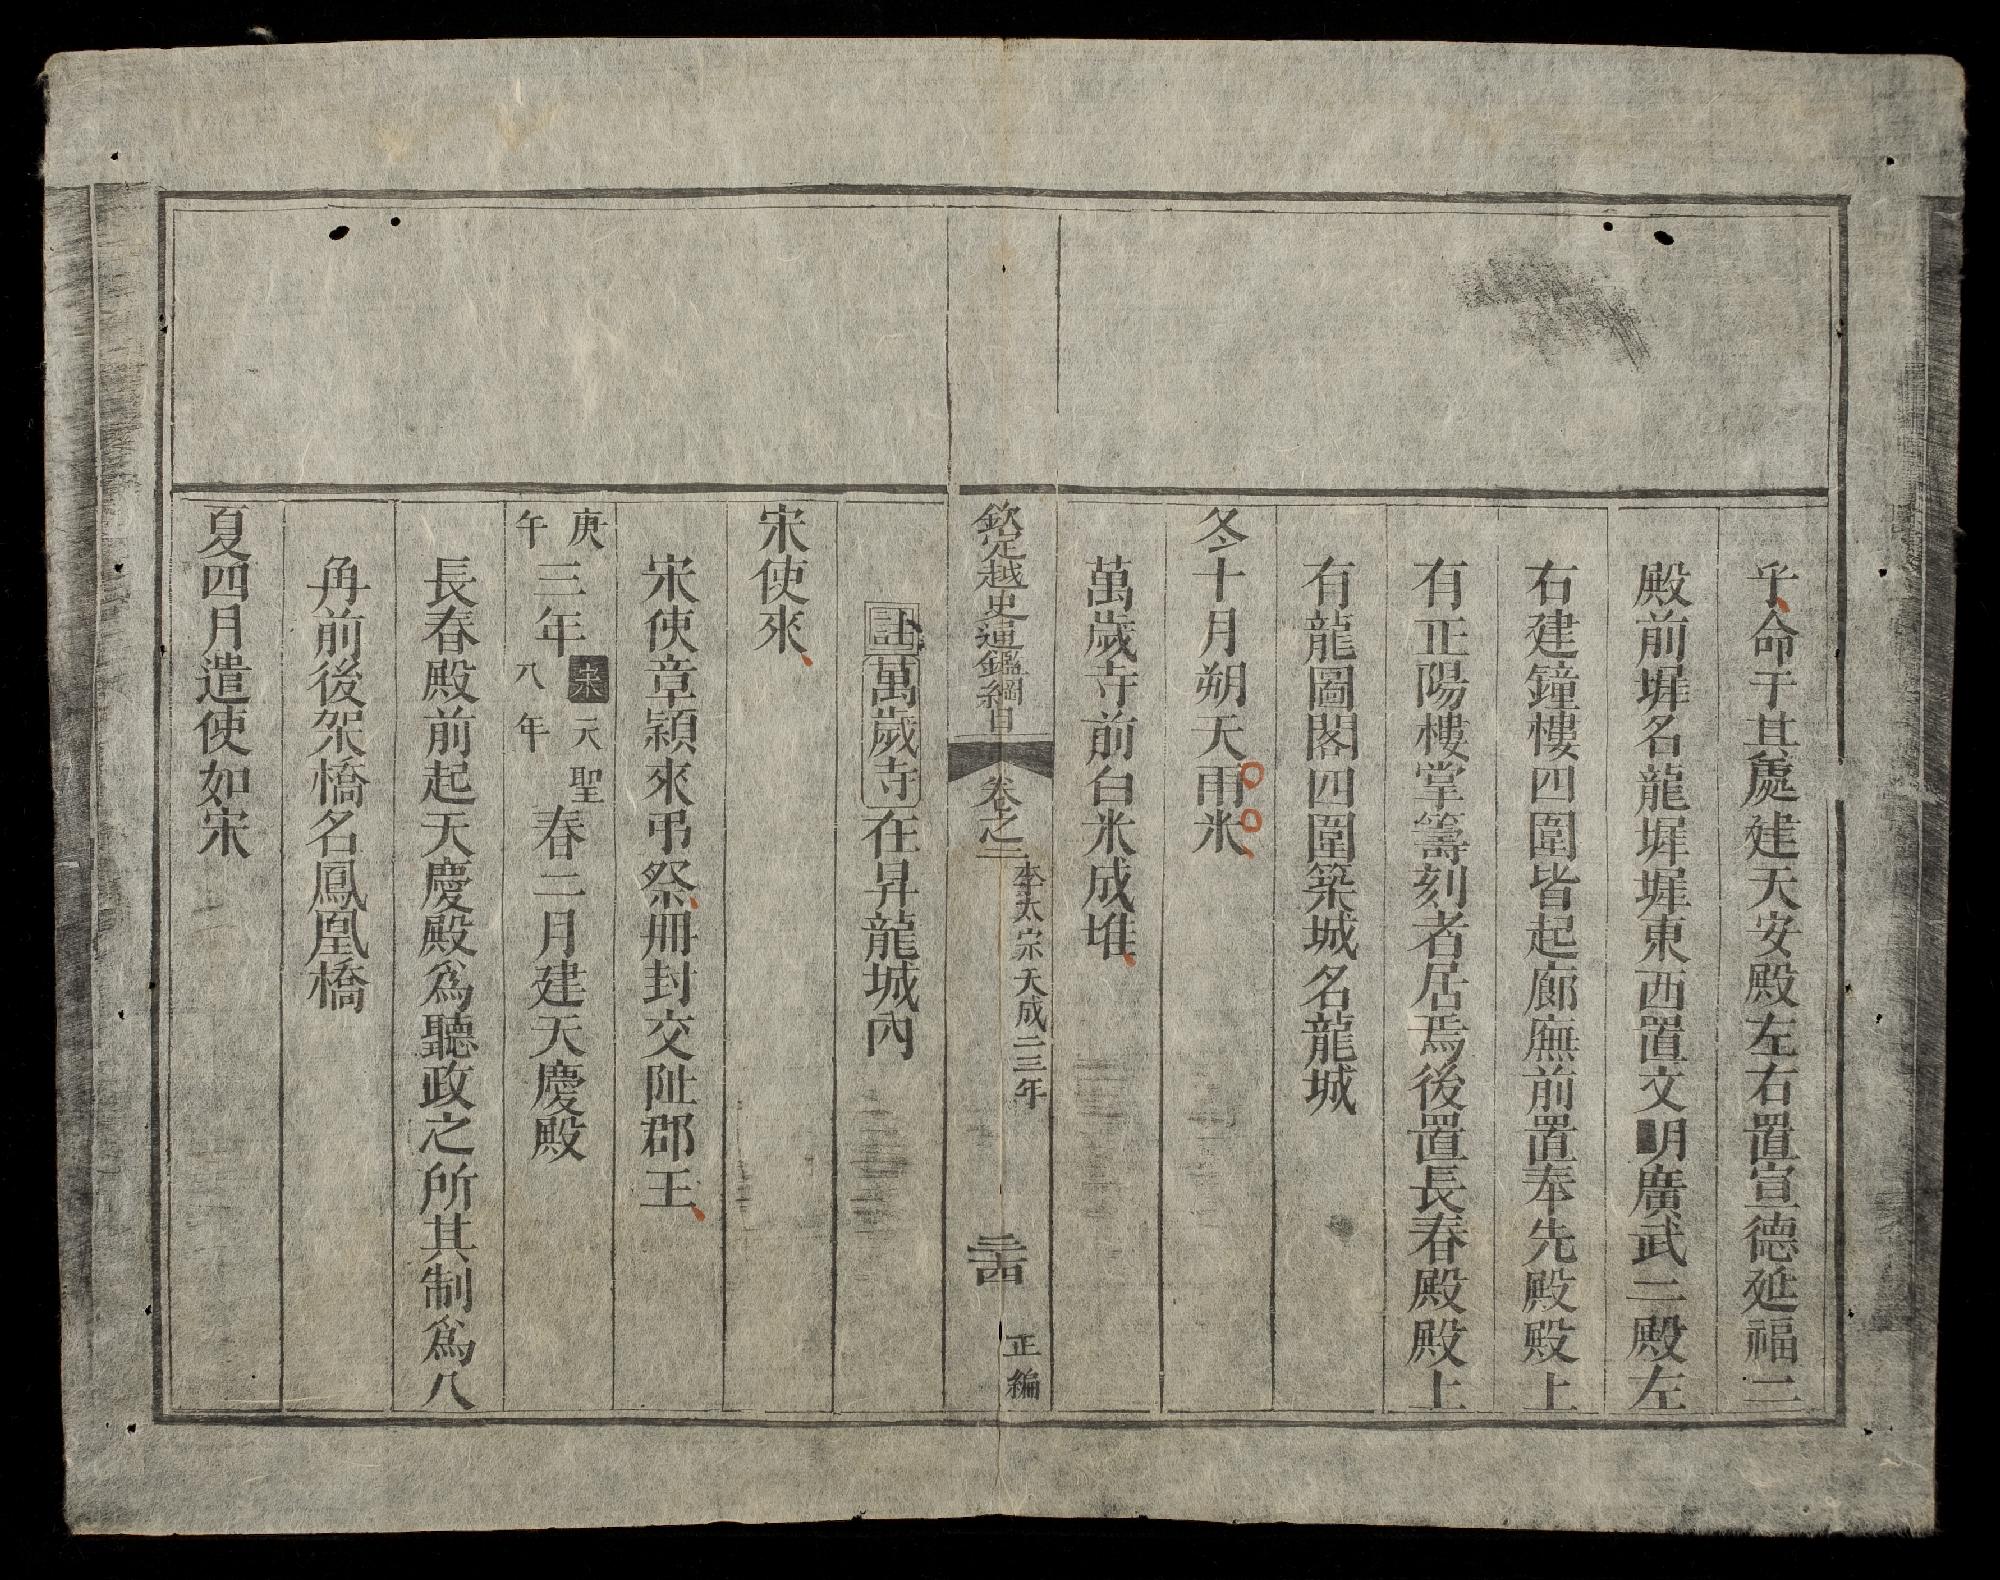 乎命于其處建天安殿左右置宣德延福二
殿前墀名龍墀墀東西置文明廣武二殿左
右建鐘樓四圍皆起廊廡前置奉先殿殿上
有正陽樓掌籌刻者居焉後置長春殿殿上
有龍圖閣四圍築城名龍城
冬十月朔天雨米
萬歲寺前白米成堆
欽定越史通鑑綱目 卷之二 李太宗天成二三年 三四 正編
註萬歲寺在昇龍城內
宋使來
宋使章穎來弔祭冊封交阯郡王
庚午三年宋天聖八年春二月建天慶殿
長春殿前起天慶殿爲聽政之所其制爲八
角前後架橋名鳳凰橋
夏四月遣使如宋